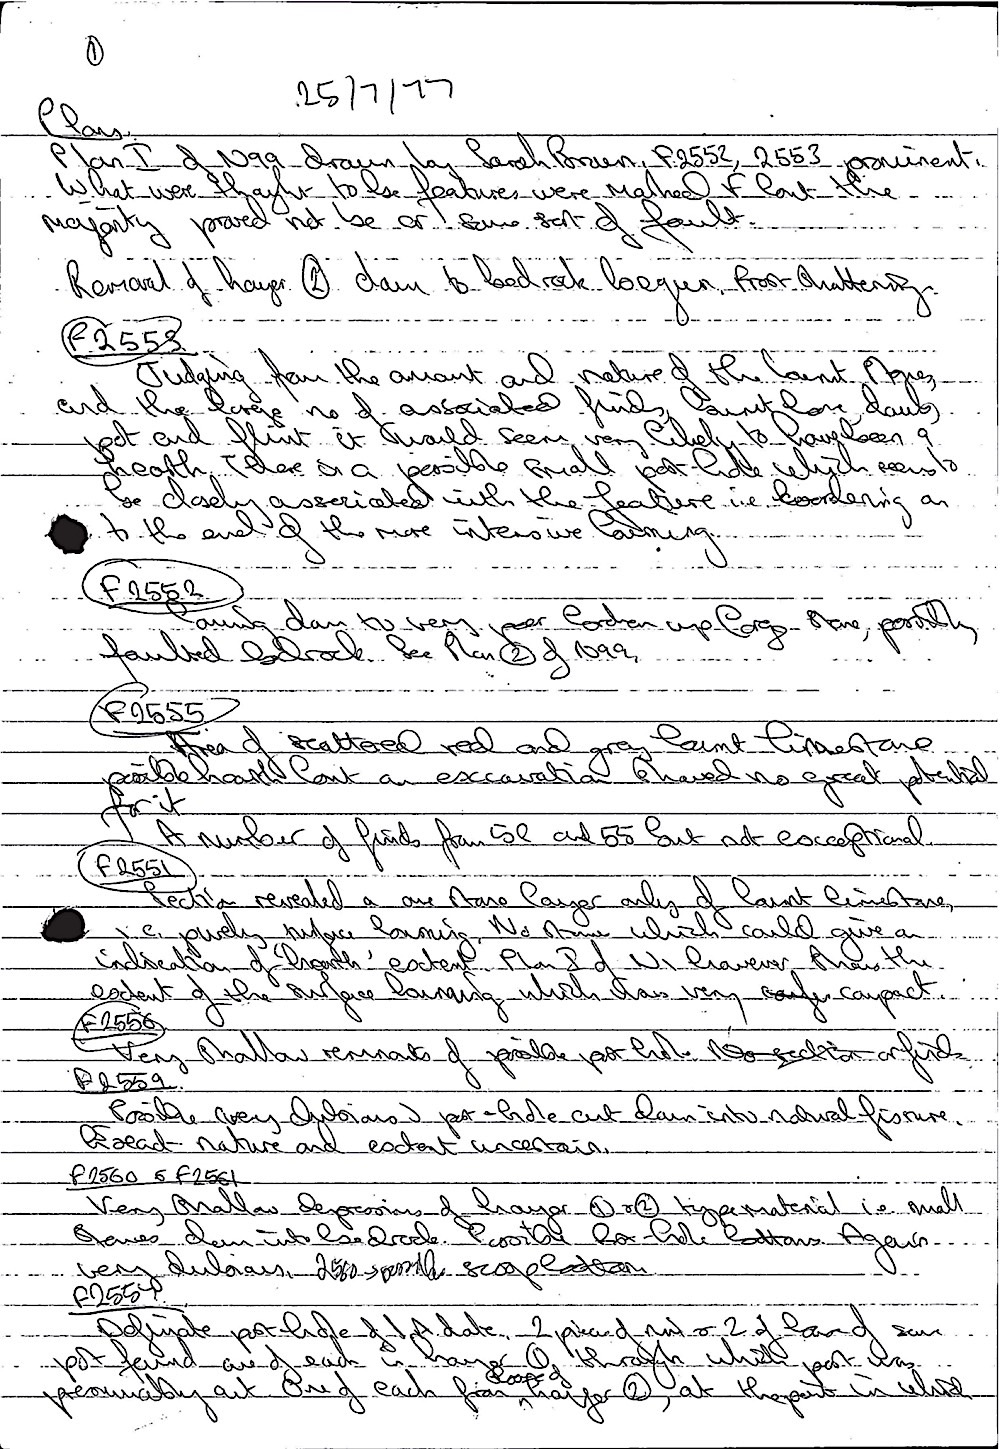 ①
25/7/77
Plans.
Plan I of N99 drawn by Sarah Brown, F2552, 2553 prominent.
What were thought to be features were marked F but the
majority proved not be or some sort of fault.
Removal of Layer ② down to bedrock begun. Frost-shattering.
F2553
Judging from the amount and nature of the burnt stones,
and the large no of associated finds, burnt bone, daub,
pot and flint it would seem very likely to have been a
hearth. There is a possible small post-hole which seems to
be closely associated with the feature i.e. bordering on
to the end of the more intensive burning.
F2552
down to very poor up stone, possibly
faulted bedrock. See Plan ② of N99.
F2555
Area of scattered red and grey burnt limestone
possible hearth but on excavation showed no great potential
for it
A number of finds from 52 and 55 but not exceptional.
F2551
Section revealed a one stone layer only of burnt limestone,
i.e. purely surface burning. No stone which could give an
indication of 'hearth' extent. Plan I of N. however shows the
extent of the surface burning which was very compact.
F2556
Very shallow remnants of possible post-hole. No section or finds
F2559
Possible (very dubious) post-hole cut down into natural fissure.
Exact nature and extent uncertain.
F2560 & F2561
Very shallow depressions of Layer ① or ② type material i.e. small
stones down into bedrock. Possible post-hole bottoms. Again
very dubious. 2560 → possible scoop bottom
F2554
Definite post-hole of I.A date. 2 pieces of rim or 2 of base of same
pot found one of each in Layer ①, through which post was
presumably cut. One of each from base of Layer ②, at the point in which